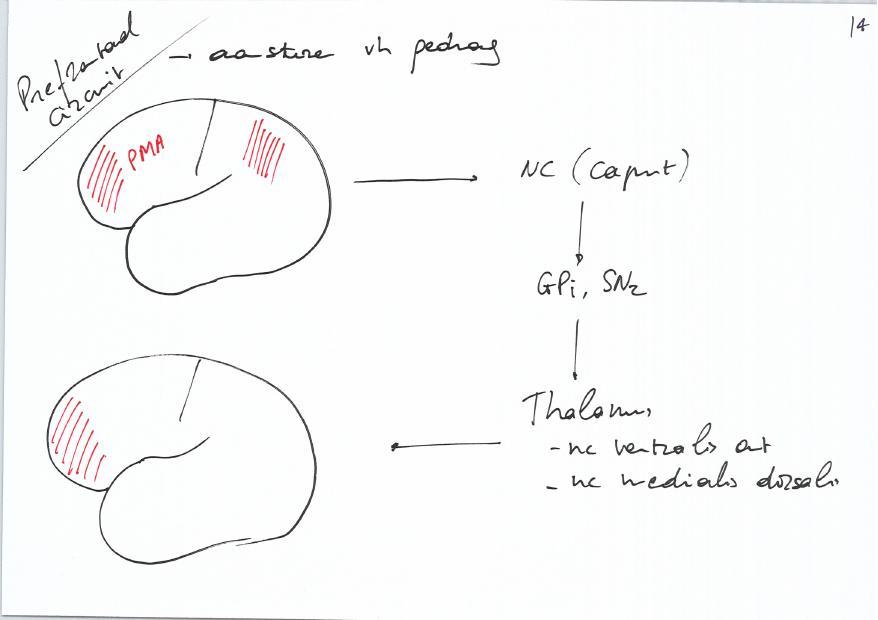 14
Prefrontaal
circuit
→ aansturen vh gedrag
PMA
NC (Caput)
GPi, SNr
Thalamus
- nc ventralis ant
- nc medialis dorsalis